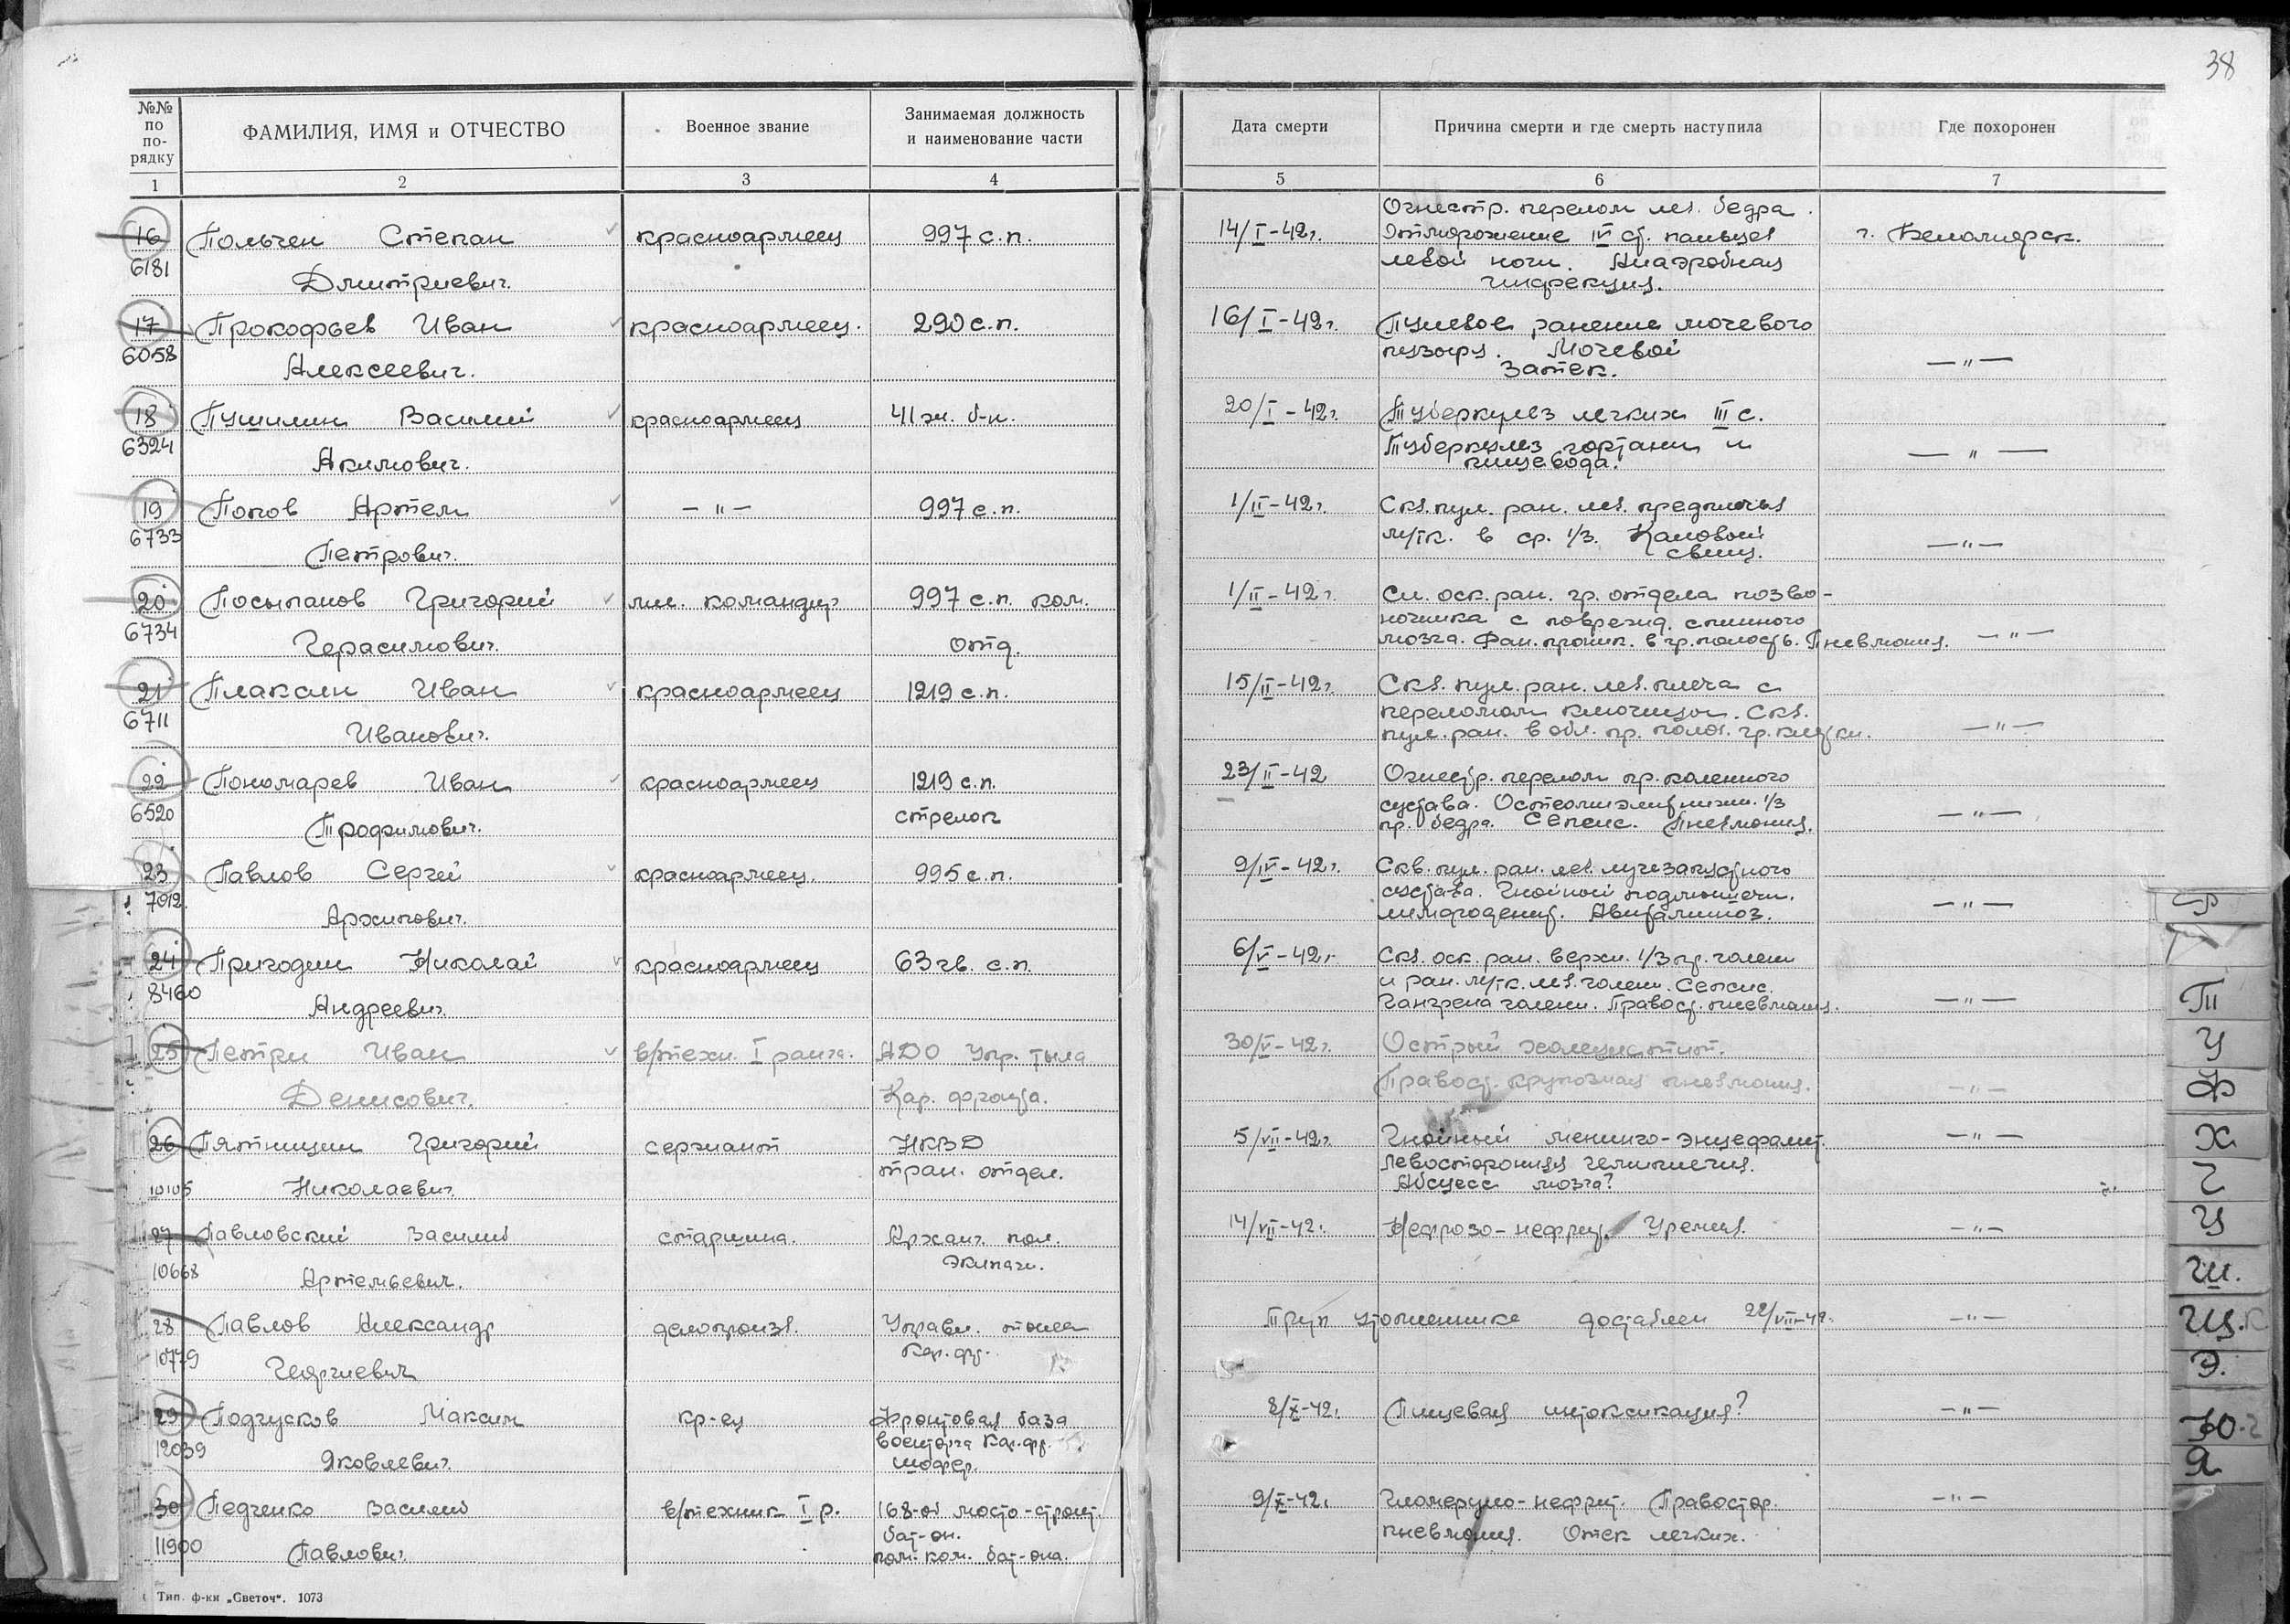 38
№№ по по-рядку
ФАМИЛИЯ, ИМЯ и ОТЧЕСТВО
Военное звание
Занимаемая должность и наименование части
Дата смерти
Причина смерти и где смерть наступила
Где похоронен
1 2 3 4 5 6 7
16 Польчен Степан красноармеец 997 с.п. 14/I-42г. Огнестр. перелом лев. бедра.
Отморожение IV ст. пальцев г. Беломорск.
6181 Дмитриевич. левой ноги. Анаэробная
инфекция.
17 Прокофьев Иван красноармеец. 290 с.п. 16/I-42г. Пулевое ранение мочевого
6058 Алексеевич. пузыря. Мочевой — " —
затек.
18 Пушилин Василий красноармеец 41 б-н. 20/I-42г. Туберкулез легких III с.
6324 Акимович. Туберкулез гортани и — " —
пищевода.
19 Попов Артем — " — 997 с.п. 1/II-42г. Скв. пул. ран. лев. предплечья
6733 Петрович. м/тк. в ср. 1/3. Каловый — " —
свищ.
20 Посыпанов Григорий мл. командир 997 с.п. ком. 1/II-42г. Сл. оск. ран. гр. отдела позво-
6734 Герасимович. отд. ночника с поврежд. спинного
мозга. Ран. проник. в гр. полость. Пневмония. — " —
21 Плаксин Иван красноармеец 1219 с.п. 15/II-42г. Скв. пул. ран. лев. плеча с
6711 Иванович. переломом ключицы. Скв.
пул. ран. в обл. пр. полов. гр. клетки. — " —
22 Пономарев Иван красноармеец 1219 с.п. 23/II-42 Огнестр. перелом пр. коленного
6520 Трофимович. стрелок сустава. Остеомиэлит нижн. 1/3 — " —
пр. бедра. Сепсис. Пневмония.
23 Павлов Сергей красноармеец. 995 с.п. 9/IV-42г. Скв. пул. ран. лев. лучезапястного
7912 Архипович. сустава. Гнойный подмышечн. — " —
лимфоденит. Авитаминоз.
24 Пригодин Николай красноармеец 63 гв. с.п. 6/V-42г. Скв. оск. ран. верхн. 1/3 пр. голени
8460 Андреевич. и ран. м/тк. лев. голени. Сепсис.
Гангрена голени. Правост. пневмония. — " —
25 Петри Иван в/техн. I ранга. АДО Упр. тыла 30/V-42г. Острый холецистит.
Денисович. Кар. фронта. Правост. крупозная пневмония. — " —
26 Пятницин Григорий сержант НКВД 5/VII-42г. Гнойный менинго-энцефалит. — " —
тран. отдел. Левосторонняя гемиплегия.
10105 Николаевич. Абсцесс мозга?
27 Павловский Василий старшина. Арханг. пол. 14/VII-42г. Нефрозо-нефрит. Уремия. — " —
экипаж.
10668 Артемьевич.
28 Павлов Александр делопроизв. Управл. тыла Труп утопленника доставлен 22/VIII-42. — " —
Кар. фр.
10779 Георгиевич
29 Подгусков Максим кр-ец Фронтовая база 8/X-42г. Пищевая интоксикация? — " —
военторга Кар. фр.
12039 Яковлевич. шофер.
30 Педченко Василий в/техник I р. 168-ой мосто-строит. 9/X-42г. Гломеруло-нефрит. Правостор. — " —
бат-он. пневмония. Отек легких.
11900 Павлович. пом. ком. бат-она.
Тип. ф-ки „Светоч“. 1073
Р
Т
У
Ф
Х
Ц
Ч
Ш.
Щ.
Э.
Ю
Я